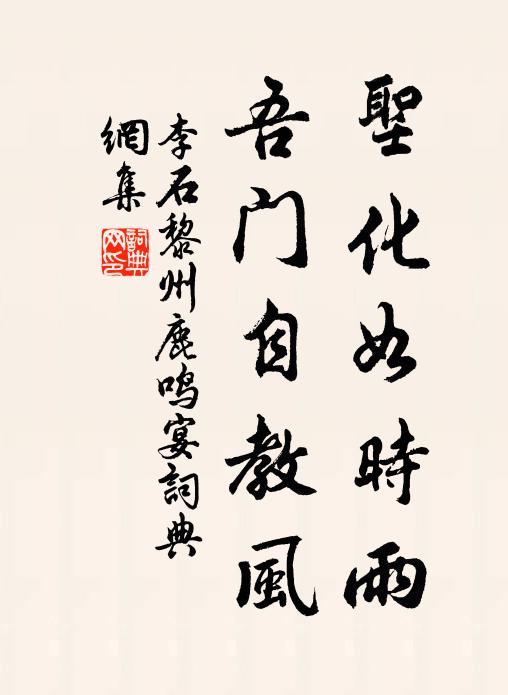 聖化如時雨
吾門自教風
李石黎州鹿鳴宴詞典
網集
詞典
网印